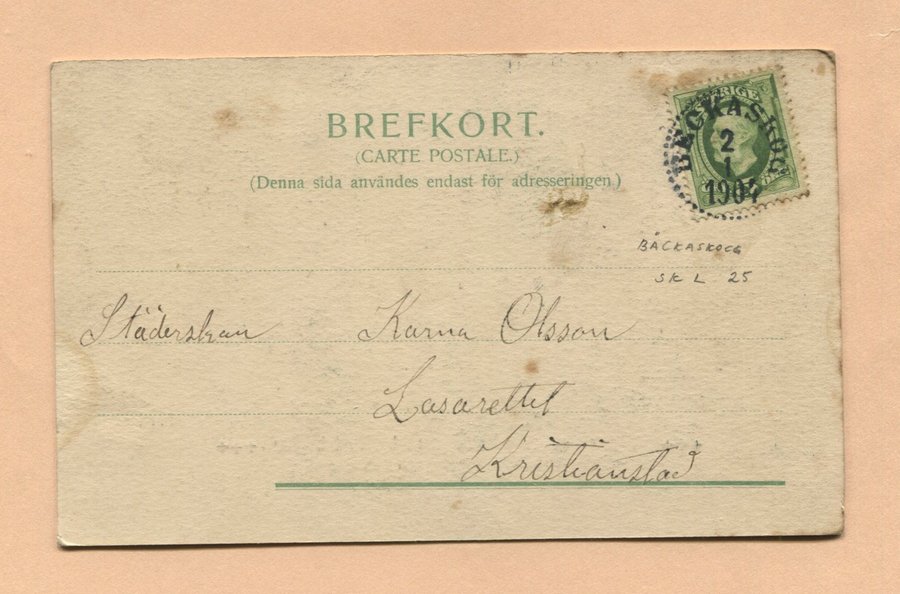 BREFKORT.
(CARTE POSTALE.)
(Denna sida användes endast för adresseringen.)
SVERIGE
BECKASKOG
2
1
1904
BÄCKASKOG
SKL 25
Städerskan Karna Olsson
Lasarettet
Kristianstad